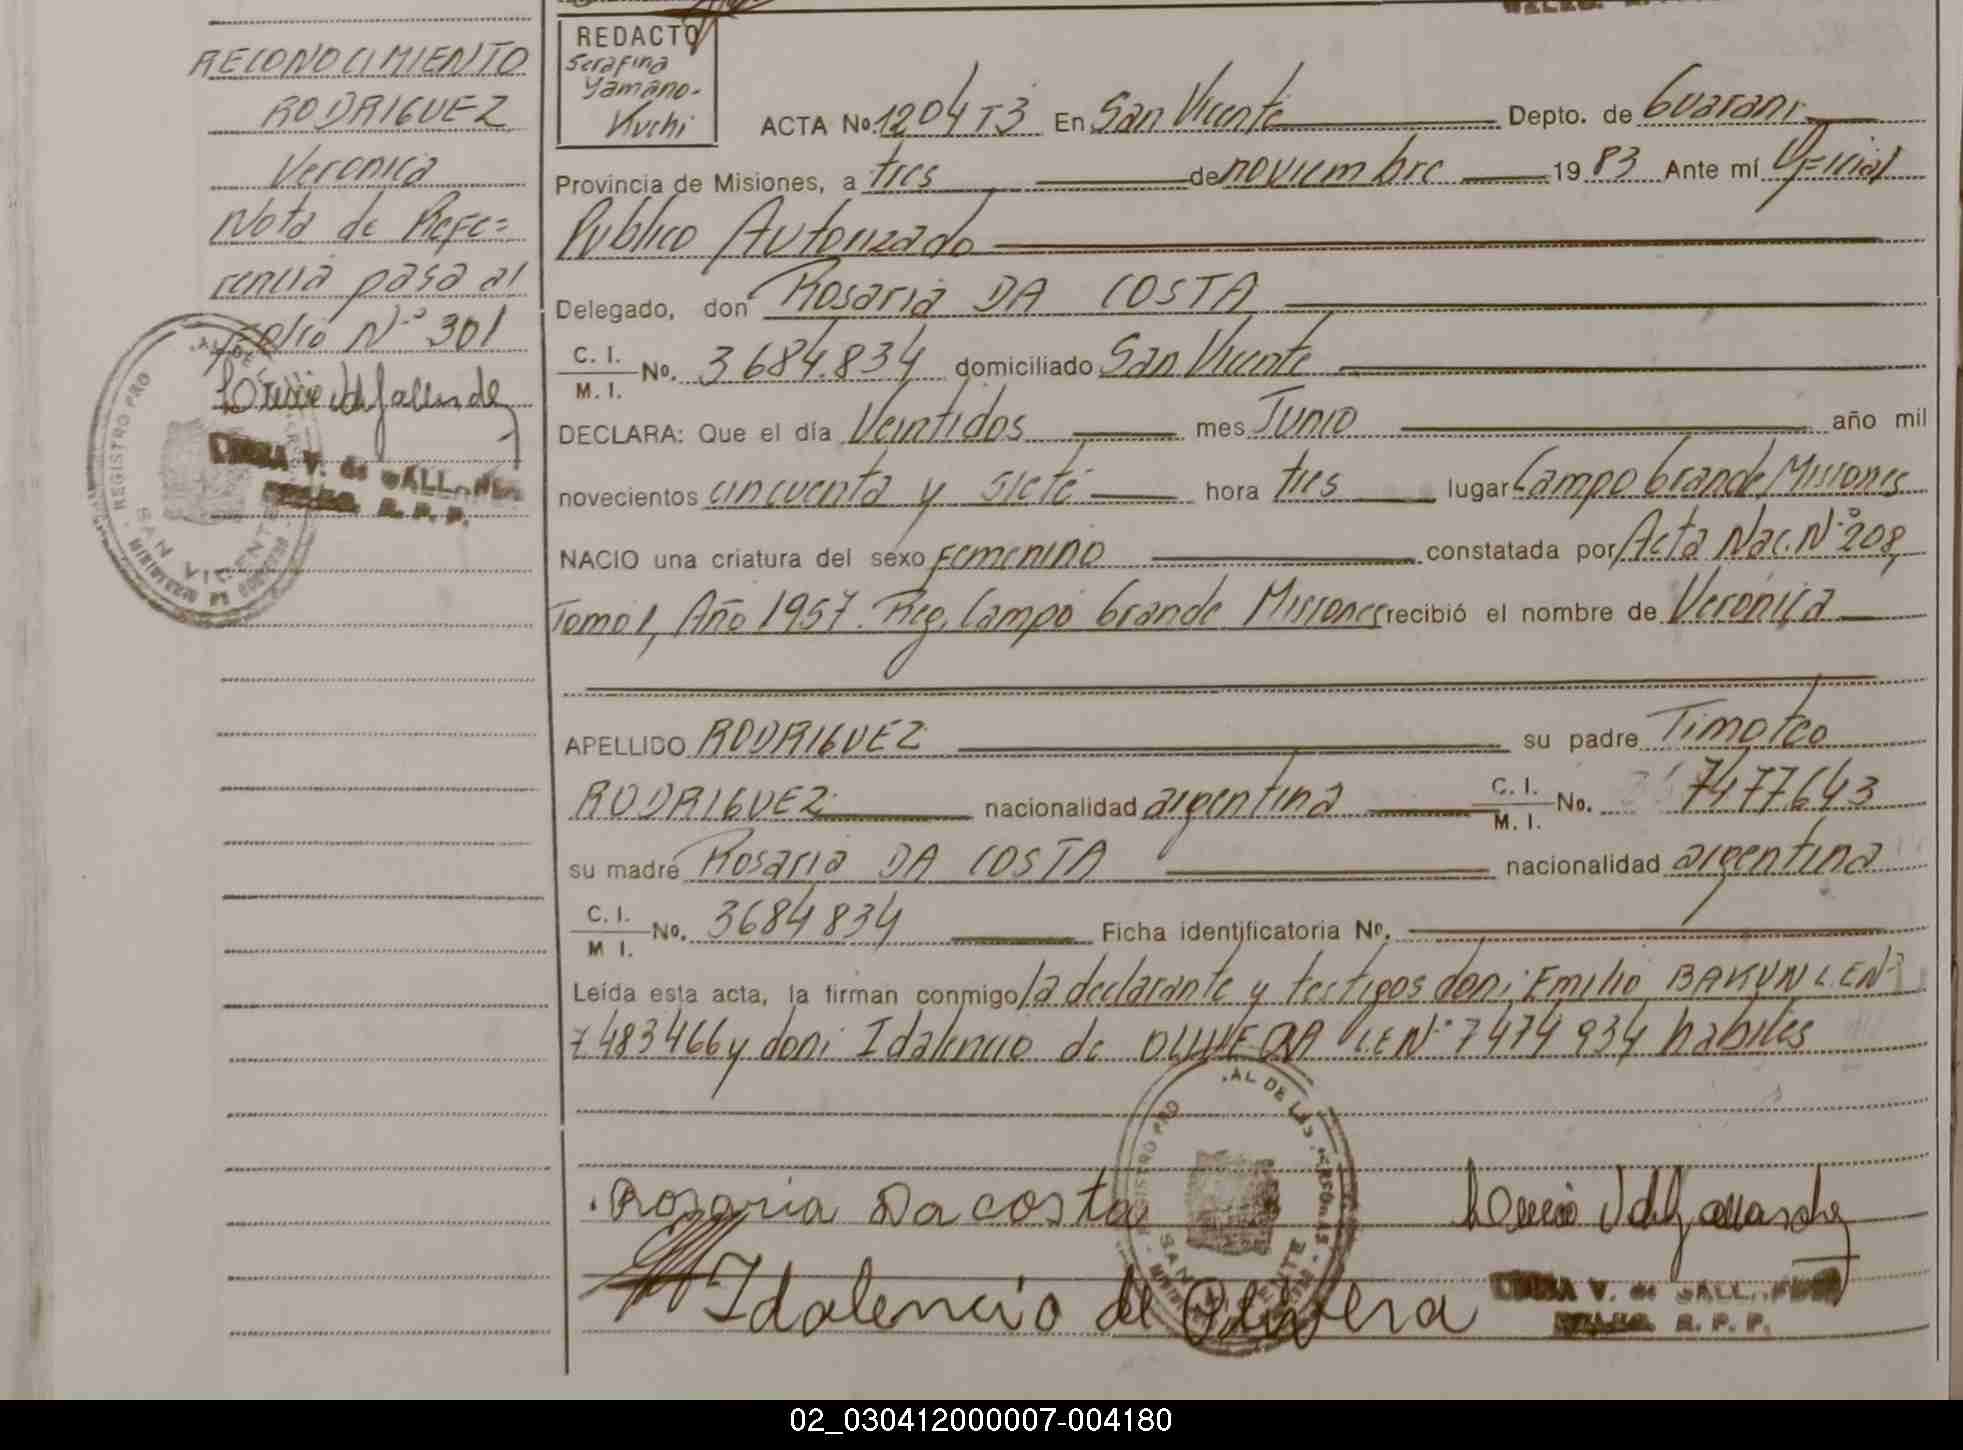 RECONOCIMIENTO
RODRIGUEZ
Veronica
Nota de Refe=
rencia pasa al
Folio Nº 301
REDACTO
Serafina
Yamano-
Kuchi
ACTA No. 1204 T3 En San Vicente Depto. de Guarani
Provincia de Misiones, a tres de noviembre 1983 Ante mí Oficial
Publico Autorizado
Delegado, don Rosaria DA COSTA
C. I.
M. I. No. 3684.834 domiciliado San Vicente
DECLARA: Que el día Veintidos mes Junio año mil
novecientos cincuenta y siete hora tres lugar Campo Grande, Misiones
NACIO una criatura del sexo Femenino constatada por Acta Nac. Nº 208,
Tomo 1, Año 1957. Reg. Campo Grande Misiones recibió el nombre de Verónica
APELLIDO RODRIGUEZ su padre Timoteo
RODRIGUEZ nacionalidad argentina C. I.
M. I. No. 7477643
su madre Rosaria DA COSTA nacionalidad argentina
C. I.
M I. No. 3684834 Ficha identificatoria No.
Leída esta acta, la firman conmigo la declarante y testigos don: Emilio BAKUN L.E Nº
7483466 y don: Idalencio de OLIVERA L.E Nº 7474934 habiles
Rosaria Da costa
Idalencio de Olivera
V. de
R. P. P.
REGISTRO PRO
SAN VICENTE
02_030412000007-004180